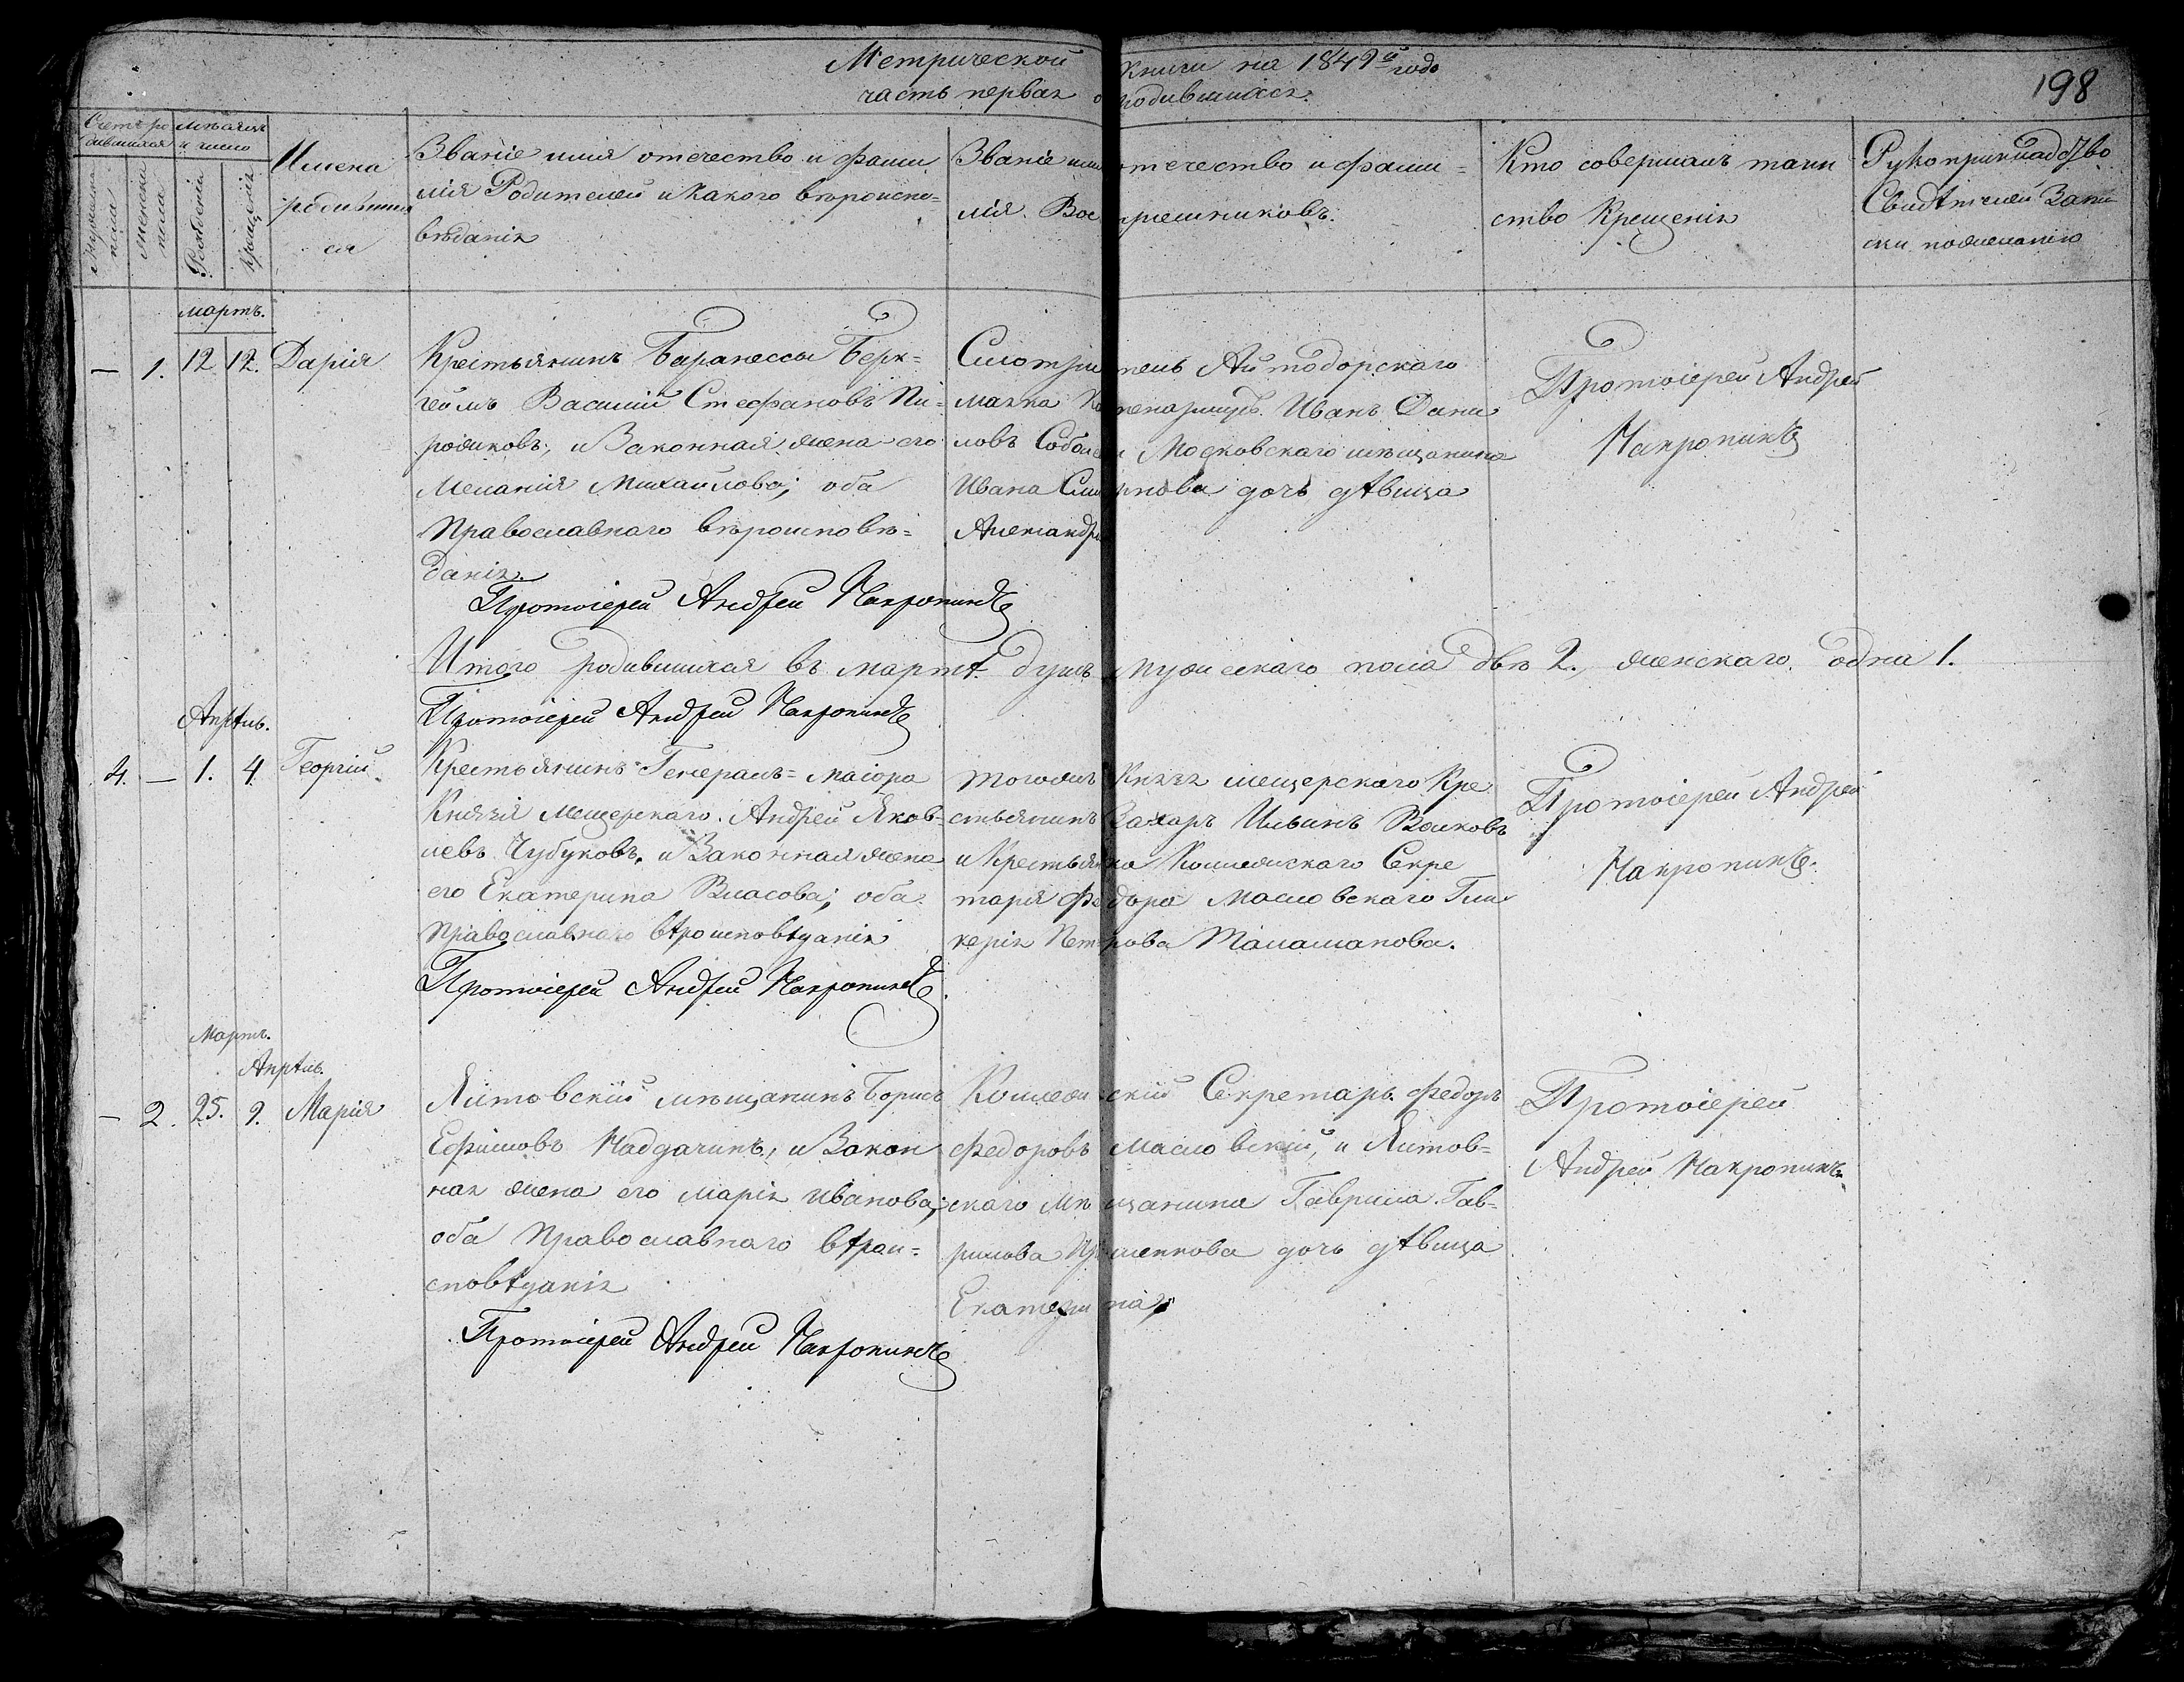 Метрической книги на 1849й годъ
198
часть первая о родившихся.
Счетъ ро
дившихся
Мужеска
пола
Женска
пола
мѣсяцъ
и число
Рожденія
Крещенія
Имена
родивших
ся
Званіе имя отечество и фами
лія Родителей и какого вѣроиспо=
вѣданія
Званіе имя отечество и фами=
лія Воспріемниковъ.
Кто совершалъ таин
ство Крещенія
Рукоприкладство
Свидѣтелей Запи
си по желанію
мартъ.
— 1. 12 12. Дарія
Крестьянинъ Баранессы Берк=
геймъ Василій Стефановъ Пи=
рожковъ, и Законная жена его
Меланія Михайлова; оба
Православнаго вѣроисповѣ=
данія.
Протоіерей Андрей
Смотритель Айтодорскаго
маяка Иванъ Дани
ловъ Соболевъ Московскаго мѣщанина
Ивана Смирнова дочь дѣвица
Александра
Протоіерей Андрей
Итого родившихся въ мартѣ душъ мужескаго пола двѣ 2., женскаго одна 1.
Протоіерей Андрей
Апрѣль.
4. — 1. 4. Георгій
Крестьянинъ Генералъ=маіора
Князя Мещерскаго. Андрей Яков=
левъ Чубуковъ, и Законная жена
его Екатерина Власова; оба
Православнаго вѣроисповѣданія
Протоіерей Андрей
тогожъ Князя мещерскаго Кре
стьянинъ Захаръ Ильинъ Волковъ
и Крестьянка Коллежскаго Секре
таря Федора Масловскаго Гли
керія Петрова Таламанова.
Протоіерей Андрей
Мартъ.
Апрѣль.
— 2. 25. 9. Марія
Ялтовскій мѣщанинъ Борисъ
Ефимовъ Надгачинъ, и Закон
ная жена его марія иванова;
оба Православнаго вѣрои=
сповѣданія
Протоіерей Андрей
Коллежскій Секретарь Федоръ
Федоровъ Масловскій, и Ялтов=
скаго Мѣщанина Гаврила Гав=
рилова дочь дѣвица
Екатерина,
Протоіерей
Андрей